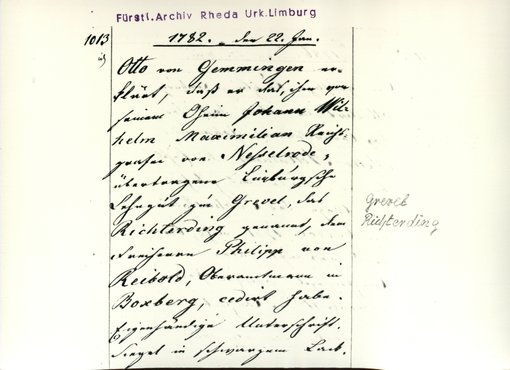 Fürstl. Archiv Rheda Urk. Limburg
1013
1782. den 22. Jan.
Otto von Gemmingen er-
klärt, daß er das, ihm von
seinem Oheim Johann Wil-
helm Maximilian Reichs-
grafen von Nesselrode,
übertragene Limburgsche
Lehngut zu Grevel, das
Richterding genannt, dem
Freiherrn Philipp von
Reibold, Oberamtmann in
Boxberg, cedirt habe.
Eigenhändige Unterschrift.
Siegel in schwarzem Lack.
Grevel
Richterding